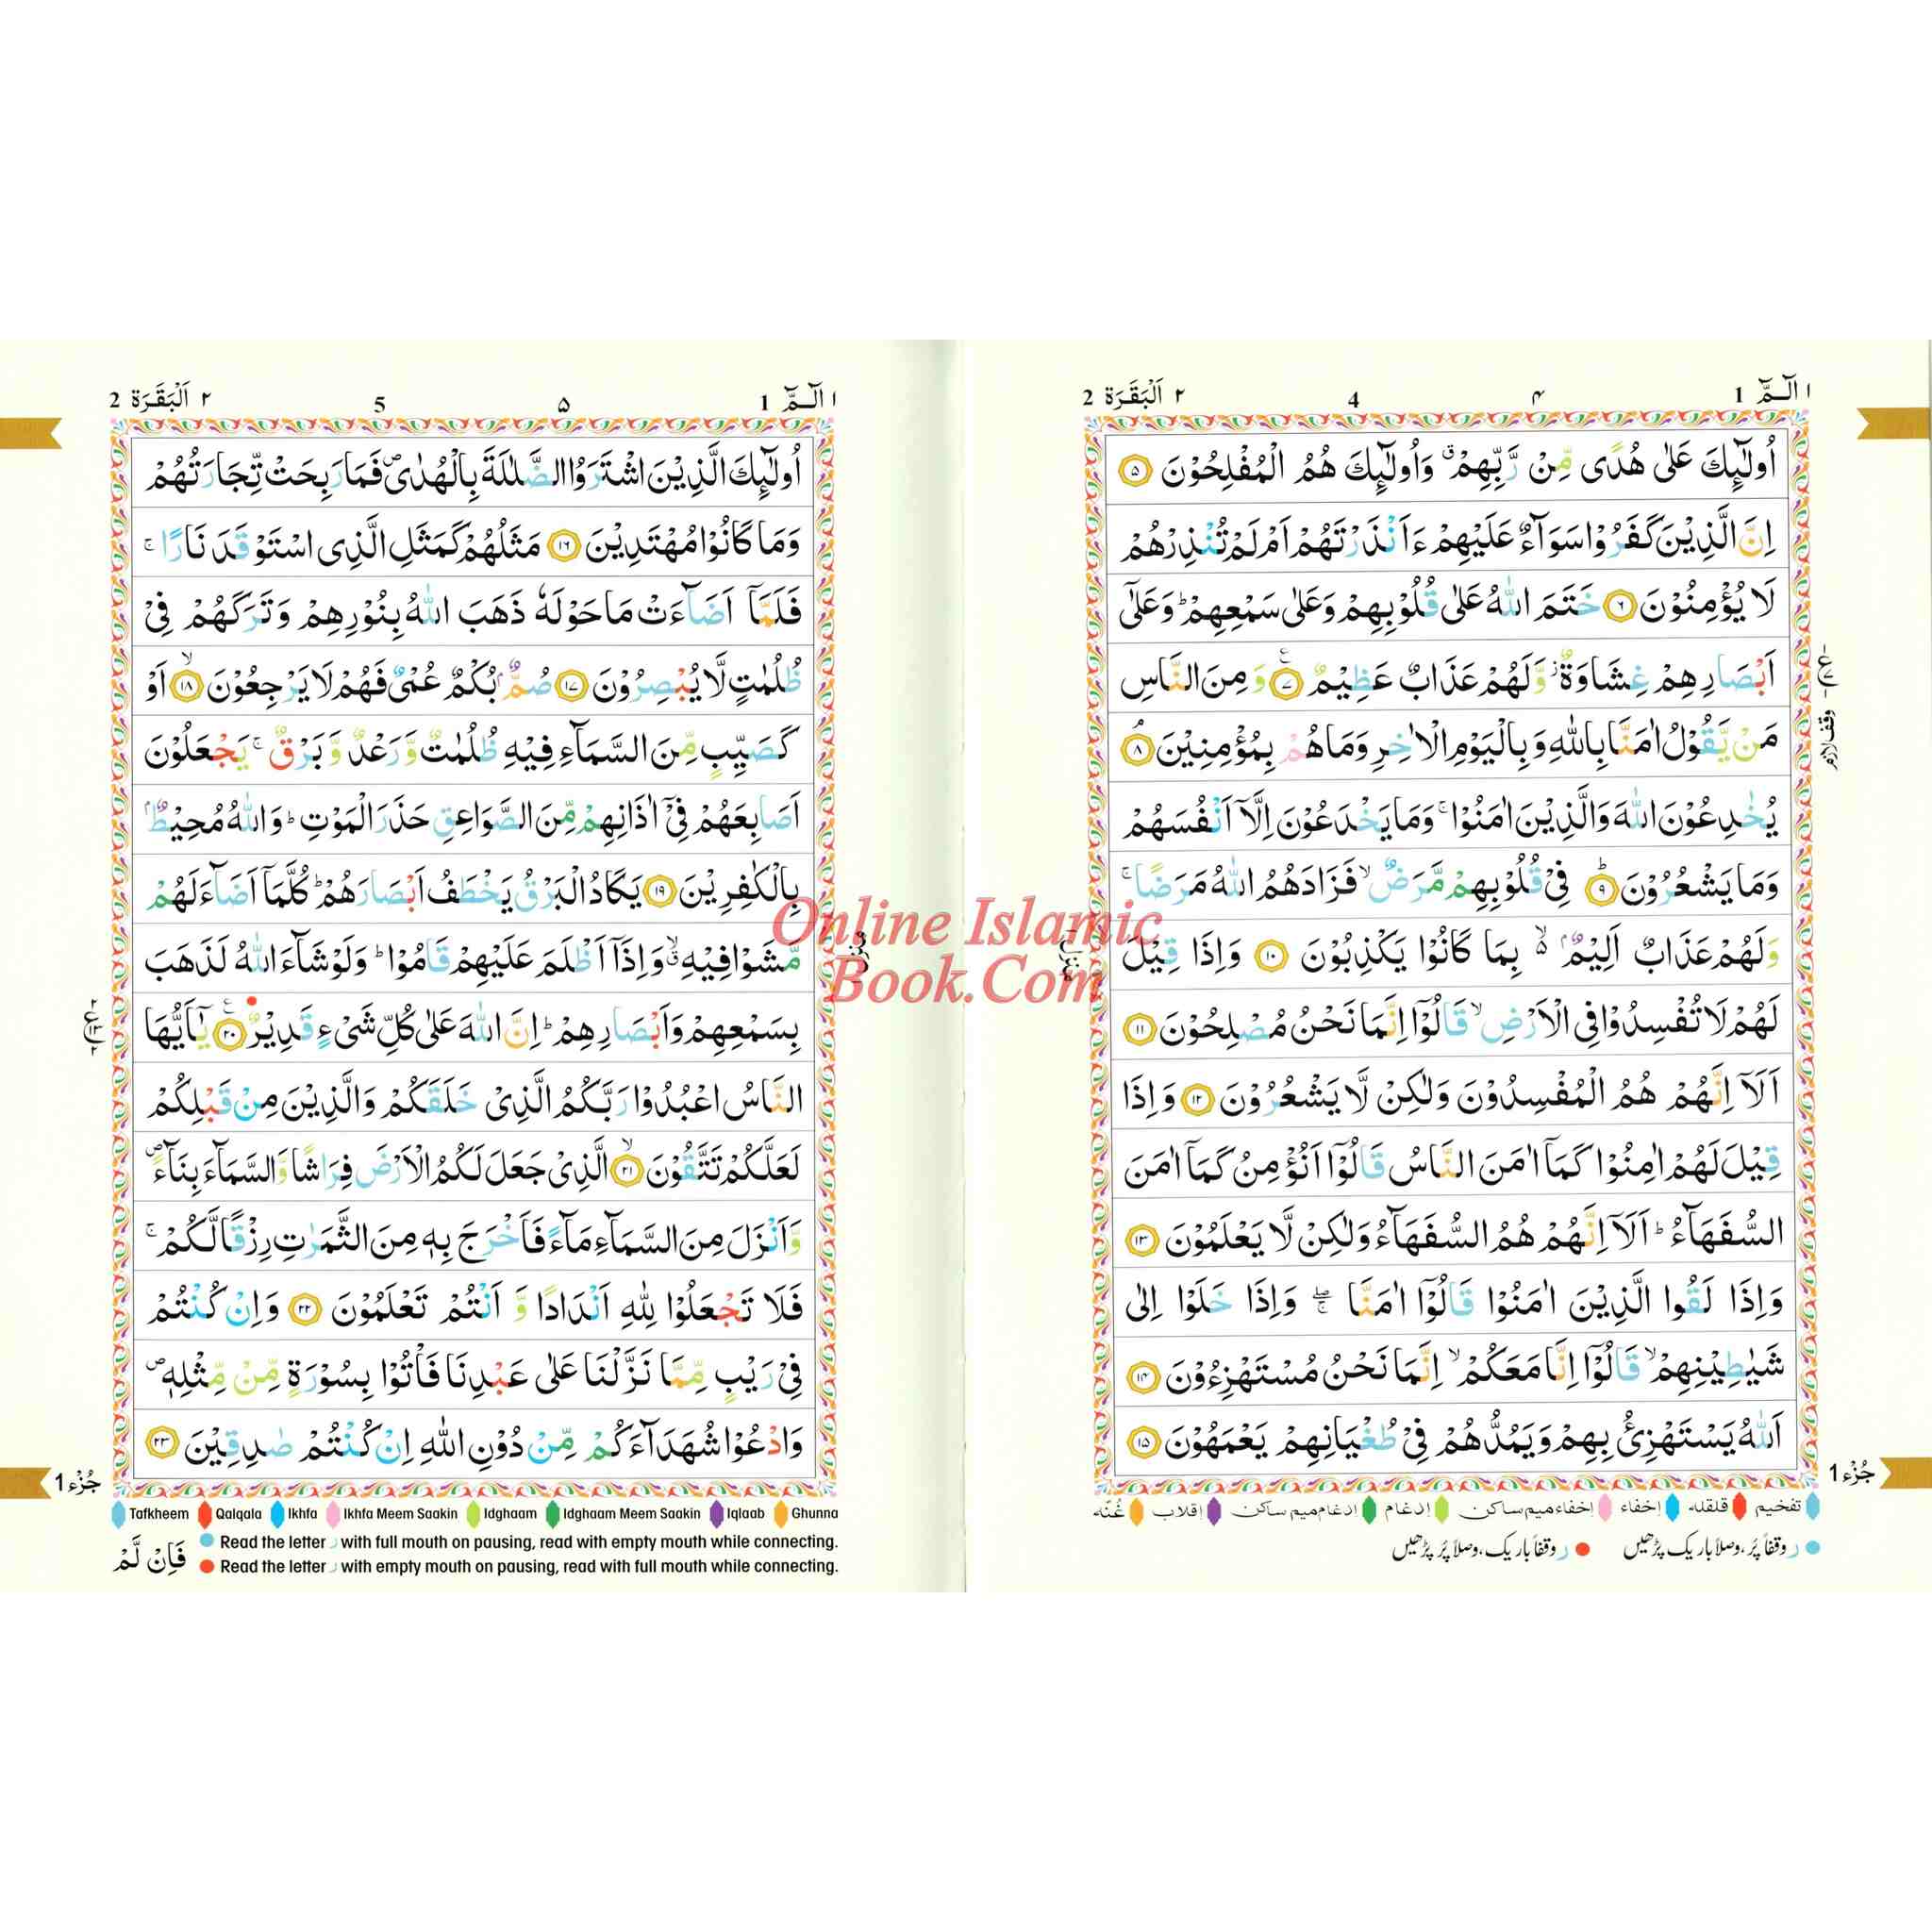 ١ الٓـمّٓ 1
۴
4
٢ اَلْبَقَرَة 2
اُولٰٓئِكَ عَلٰى هُدًى مِّنْ رَّبِّهِمْ ۗ وَاُولٰٓئِكَ هُمُ الْمُفْلِحُوْنَ ۵
اِنَّ الَّذِيْنَ كَفَرُوْا سَوَآءٌ عَلَيْهِمْ ءَاَنْذَرْتَهُمْ اَمْ لَمْ تُنْذِرْهُمْ
لَا يُؤْمِنُوْنَ ۶ خَتَمَ اللّٰهُ عَلٰى قُلُوْبِهِمْ وَعَلٰى سَمْعِهِمْ ؕ وَعَلٰٓى
اَبْصَارِهِمْ غِشَاوَةٌ ز وَّلَهُمْ عَذَابٌ عَظِيْمٌ ۷ وَمِنَ النَّاسِ
مَنْ يَّقُوْلُ اٰمَنَّا بِاللّٰهِ وَبِالْيَوْمِ الْاٰخِرِ وَمَا هُمْ بِمُؤْمِنِيْنَ ۸
يُخٰدِعُوْنَ اللّٰهَ وَالَّذِيْنَ اٰمَنُوْا ۚ وَمَا يَخْدَعُوْنَ اِلَّآ اَنْفُسَهُمْ
وَمَا يَشْعُرُوْنَ ؕ ۹ فِيْ قُلُوْبِهِمْ مَّرَضٌ ۙ فَزَادَهُمُ اللّٰهُ مَرَضًا ۚ
وَلَهُمْ عَذَابٌ اَلِيْمٌۢ ۙ۬ بِمَا كَانُوْا يَكْذِبُوْنَ ۱۰ وَاِذَا قِيْلَ
لَهُمْ لَا تُفْسِدُوْا فِي الْاَرْضِ ۙ قَالُوْٓا اِنَّمَا نَحْنُ مُصْلِحُوْنَ ۱۱
اَلَآ اِنَّهُمْ هُمُ الْمُفْسِدُوْنَ وَلٰكِنْ لَّا يَشْعُرُوْنَ ۱۲ وَاِذَا
قِيْلَ لَهُمْ اٰمِنُوْا كَمَآ اٰمَنَ النَّاسُ قَالُوْٓا اَنُؤْمِنُ كَمَآ اٰمَنَ
السُّفَهَآءُ ؕ اَلَآ اِنَّهُمْ هُمُ السُّفَهَآءُ وَلٰكِنْ لَّا يَعْلَمُوْنَ ۱۳
وَاِذَا لَقُوا الَّذِيْنَ اٰمَنُوْا قَالُوْٓا اٰمَنَّا ۖۚ وَاِذَا خَلَوْا اِلٰى
شَيٰطِيْنِهِمْ ۙ قَالُوْٓا اِنَّا مَعَكُمْ ۙ اِنَّمَا نَحْنُ مُسْتَهْزِءُوْنَ ۱۴
اَللّٰهُ يَسْتَهْزِئُ بِهِمْ وَيَمُدُّهُمْ فِيْ طُغْيَانِهِمْ يَعْمَهُوْنَ ۱۵
وقف لازم
جُزْء 1
تفخيم قلقله إخفاء إخفاء ميم ساكن إدغام إدغام ميم ساكن إقلاب غُنّه
ر وقفاً پُر، وصلاً باریک پڑھیں
ر وقفاً باریک، وصلاً پُر پڑھیں
١ الٓـمّٓ 1
۵
5
٢ اَلْبَقَرَة 2
اُولٰٓئِكَ الَّذِيْنَ اشْتَرَوُا الضَّلٰلَةَ بِالْهُدٰى ۪ فَمَا رَبِحَتْ تِّجَارَتُهُمْ
وَمَا كَانُوْا مُهْتَدِيْنَ ۱۶ مَثَلُهُمْ كَمَثَلِ الَّذِى اسْتَوْقَدَ نَارًا ۚ
فَلَمَّآ اَضَآءَتْ مَا حَوْلَهٗ ذَهَبَ اللّٰهُ بِنُوْرِهِمْ وَتَرَكَهُمْ فِيْ
ظُلُمٰتٍ لَّا يُبْصِرُوْنَ ۱۷ صُمٌّۢ بُكْمٌ عُمْيٌ فَهُمْ لَا يَرْجِعُوْنَ ۙ ۱۸ اَوْ
كَصَيِّبٍ مِّنَ السَّمَآءِ فِيْهِ ظُلُمٰتٌ وَّرَعْدٌ وَّبَرْقٌ ۚ يَجْعَلُوْنَ
اَصَابِعَهُمْ فِيْٓ اٰذَانِهِمْ مِّنَ الصَّوَاعِقِ حَذَرَ الْمَوْتِ ؕ وَاللّٰهُ مُحِيْطٌۢ
بِالْكٰفِرِيْنَ ۱۹ يَكَادُ الْبَرْقُ يَخْطَفُ اَبْصَارَهُمْ ؕ كُلَّمَآ اَضَآءَ لَهُمْ
مَّشَوْا فِيْهِ ۙۗ وَاِذَآ اَظْلَمَ عَلَيْهِمْ قَامُوْا ؕ وَلَوْ شَآءَ اللّٰهُ لَذَهَبَ
بِسَمْعِهِمْ وَاَبْصَارِهِمْ ؕ اِنَّ اللّٰهَ عَلٰى كُلِّ شَيْءٍ قَدِيْرٌ ۲۰ يٰٓاَيُّهَا
النَّاسُ اعْبُدُوْا رَبَّكُمُ الَّذِيْ خَلَقَكُمْ وَالَّذِيْنَ مِنْ قَبْلِكُمْ
لَعَلَّكُمْ تَتَّقُوْنَ ۙ ۲۱ الَّذِيْ جَعَلَ لَكُمُ الْاَرْضَ فِرَاشًا وَّالسَّمَآءَ بِنَآءً ۪
وَّاَنْزَلَ مِنَ السَّمَآءِ مَآءً فَاَخْرَجَ بِهٖ مِنَ الثَّمَرٰتِ رِزْقًا لَّكُمْ ۚ
فَلَا تَجْعَلُوْا لِلّٰهِ اَنْدَادًا وَّاَنْتُمْ تَعْلَمُوْنَ ۲۲ وَاِنْ كُنْتُمْ
فِيْ رَيْبٍ مِّمَّا نَزَّلْنَا عَلٰى عَبْدِنَا فَاْتُوْا بِسُوْرَةٍ مِّنْ مِّثْلِهٖ ۪
وَادْعُوْا شُهَدَآءَكُمْ مِّنْ دُوْنِ اللّٰهِ اِنْ كُنْتُمْ صٰدِقِيْنَ ۲۳
جُزْء 1
Tafkheem Qalqala Ikhfa Ikhfa Meem Saakin Idghaam Idghaam Meem Saakin Iqlaab Ghunna
Read the letter ر with full mouth on pausing, read with empty mouth while connecting.
Read the letter ر with empty mouth on pausing, read with full mouth while connecting.
فَاِنْ لَّمْ
Online Islamic
Book.Com